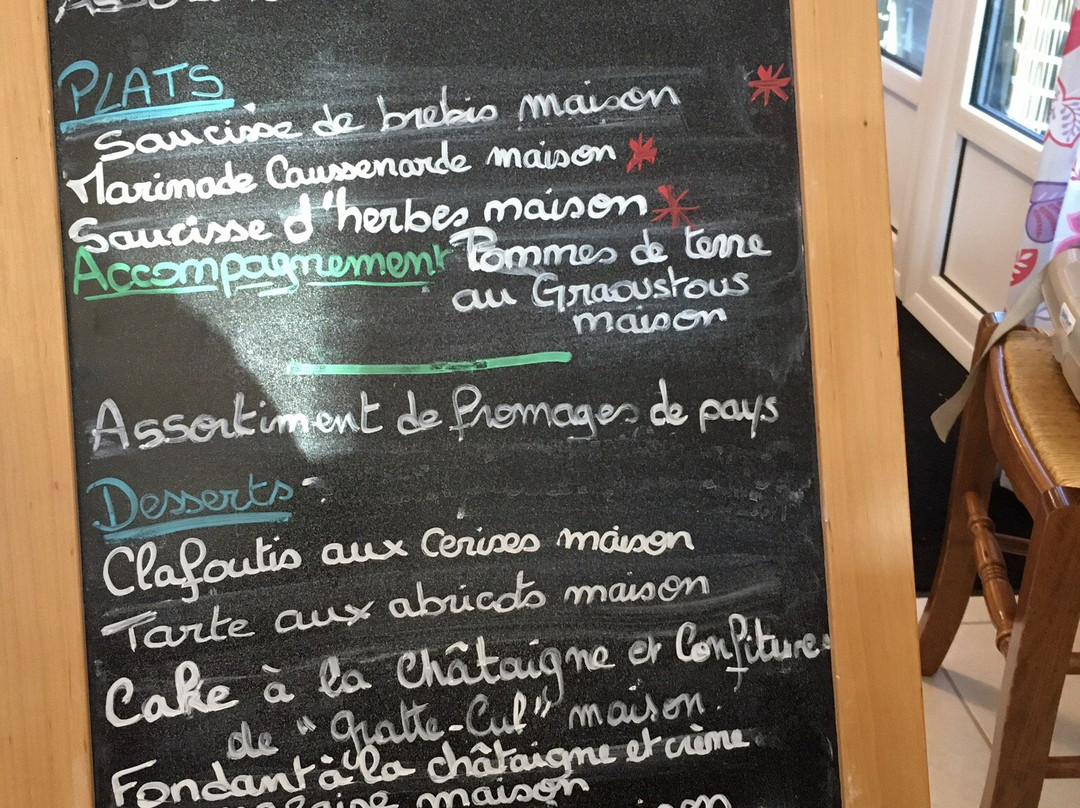 PLATS
Saucisse de brebis maison *
Marinade Caussenarde maison *
Saucisse d'herbes maison *
Accompagnement Pommes de terre
au Graoustous
maison
Assortiment de fromages de pays
Desserts
Clafoutis aux cerises maison
Tarte aux abricots maison
Cake à la Châtaigne et Confitures
de "gratte-Cul" maison.
Fondant à la châtaigne et crème
maison